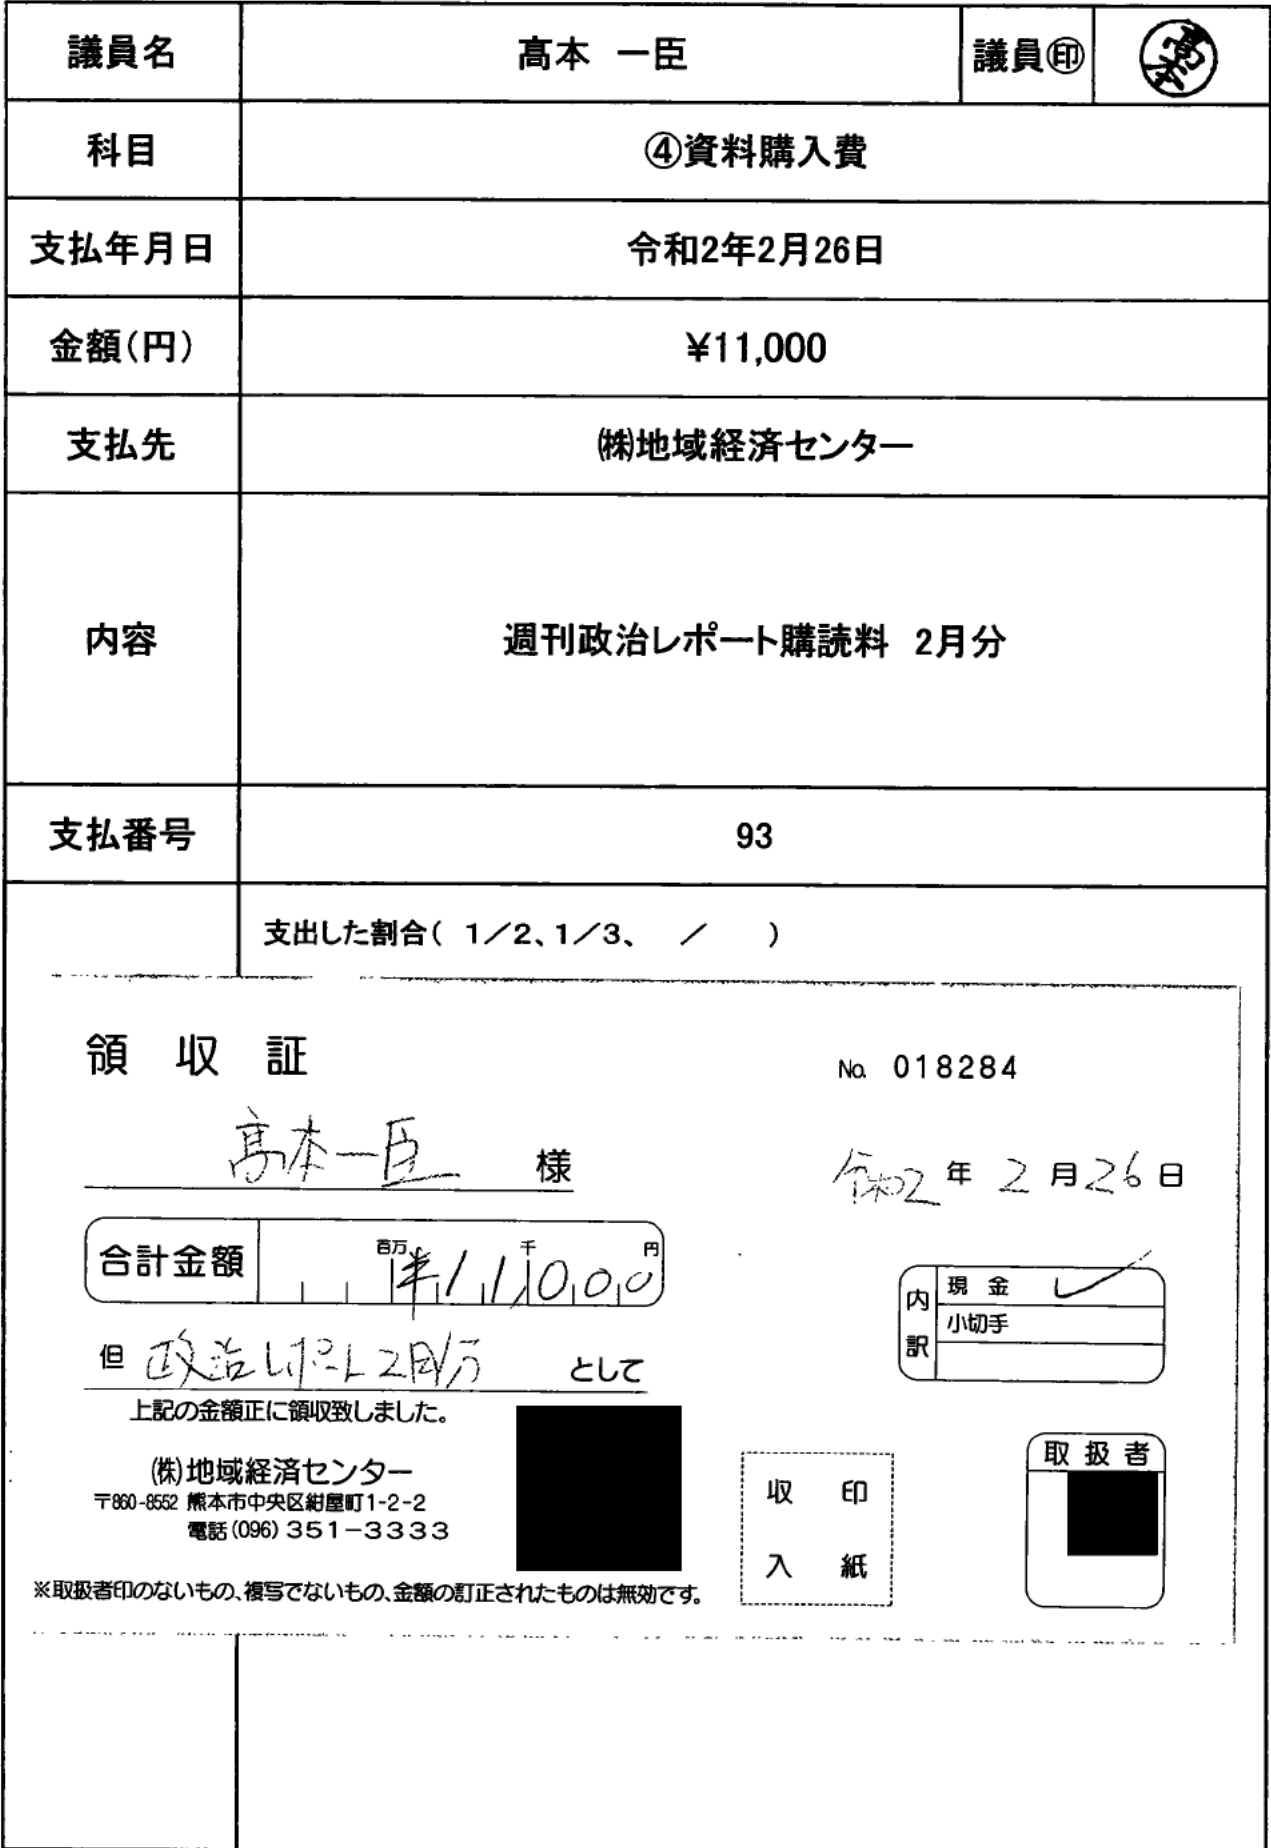 議員名 髙本 一臣 議員㊞ 髙本
科目 ④資料購入費
支払年月日 令和2年2月26日
金額(円) ¥11,000
支払先 ㈱地域経済センター
内容 週刊政治レポート購読料 2月分
支払番号 93
支出した割合( 1/2、1/3、 / )
領収証 No. 018284
髙本一臣 様 令和2年2月26日
合計金額 百万 千 円 ¥11,000
内訳 現金 ✓
小切手
但 政治レポート2月分 として
上記の金額正に領収致しました。
取扱者
(株)地域経済センター
〒860-8552 熊本市中央区紺屋町1-2-2
電話(096)351-3333
収印
入紙
※取扱者印のないもの、複写でないもの、金額の訂正されたものは無効です。